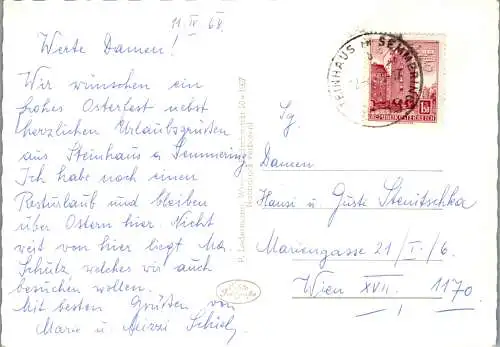 11. IV. 68.
Werte Damen!
Wir wünschen ein
frohes Osterfest nebst
herzlichen Urlaubsgrüßen
aus Steinhaus a Semmering
Ich habe noch einen
Resturlaub und bleiben
über Ostern hier. Nicht
weit von hier liegt Ma.
Schutz, welches wir auch
besuchen wollen.
Mit besten Grüßen von
Marie u. Mizzi
STEINHAUS AM SEMMERING
REPUBLIK ÖSTERREICH
Sg.
Damen
Hansi u Guste Stenitschka
Mariengasse 21/I./6.
Wien XVII. 1170.
P. Ledermann, Wien